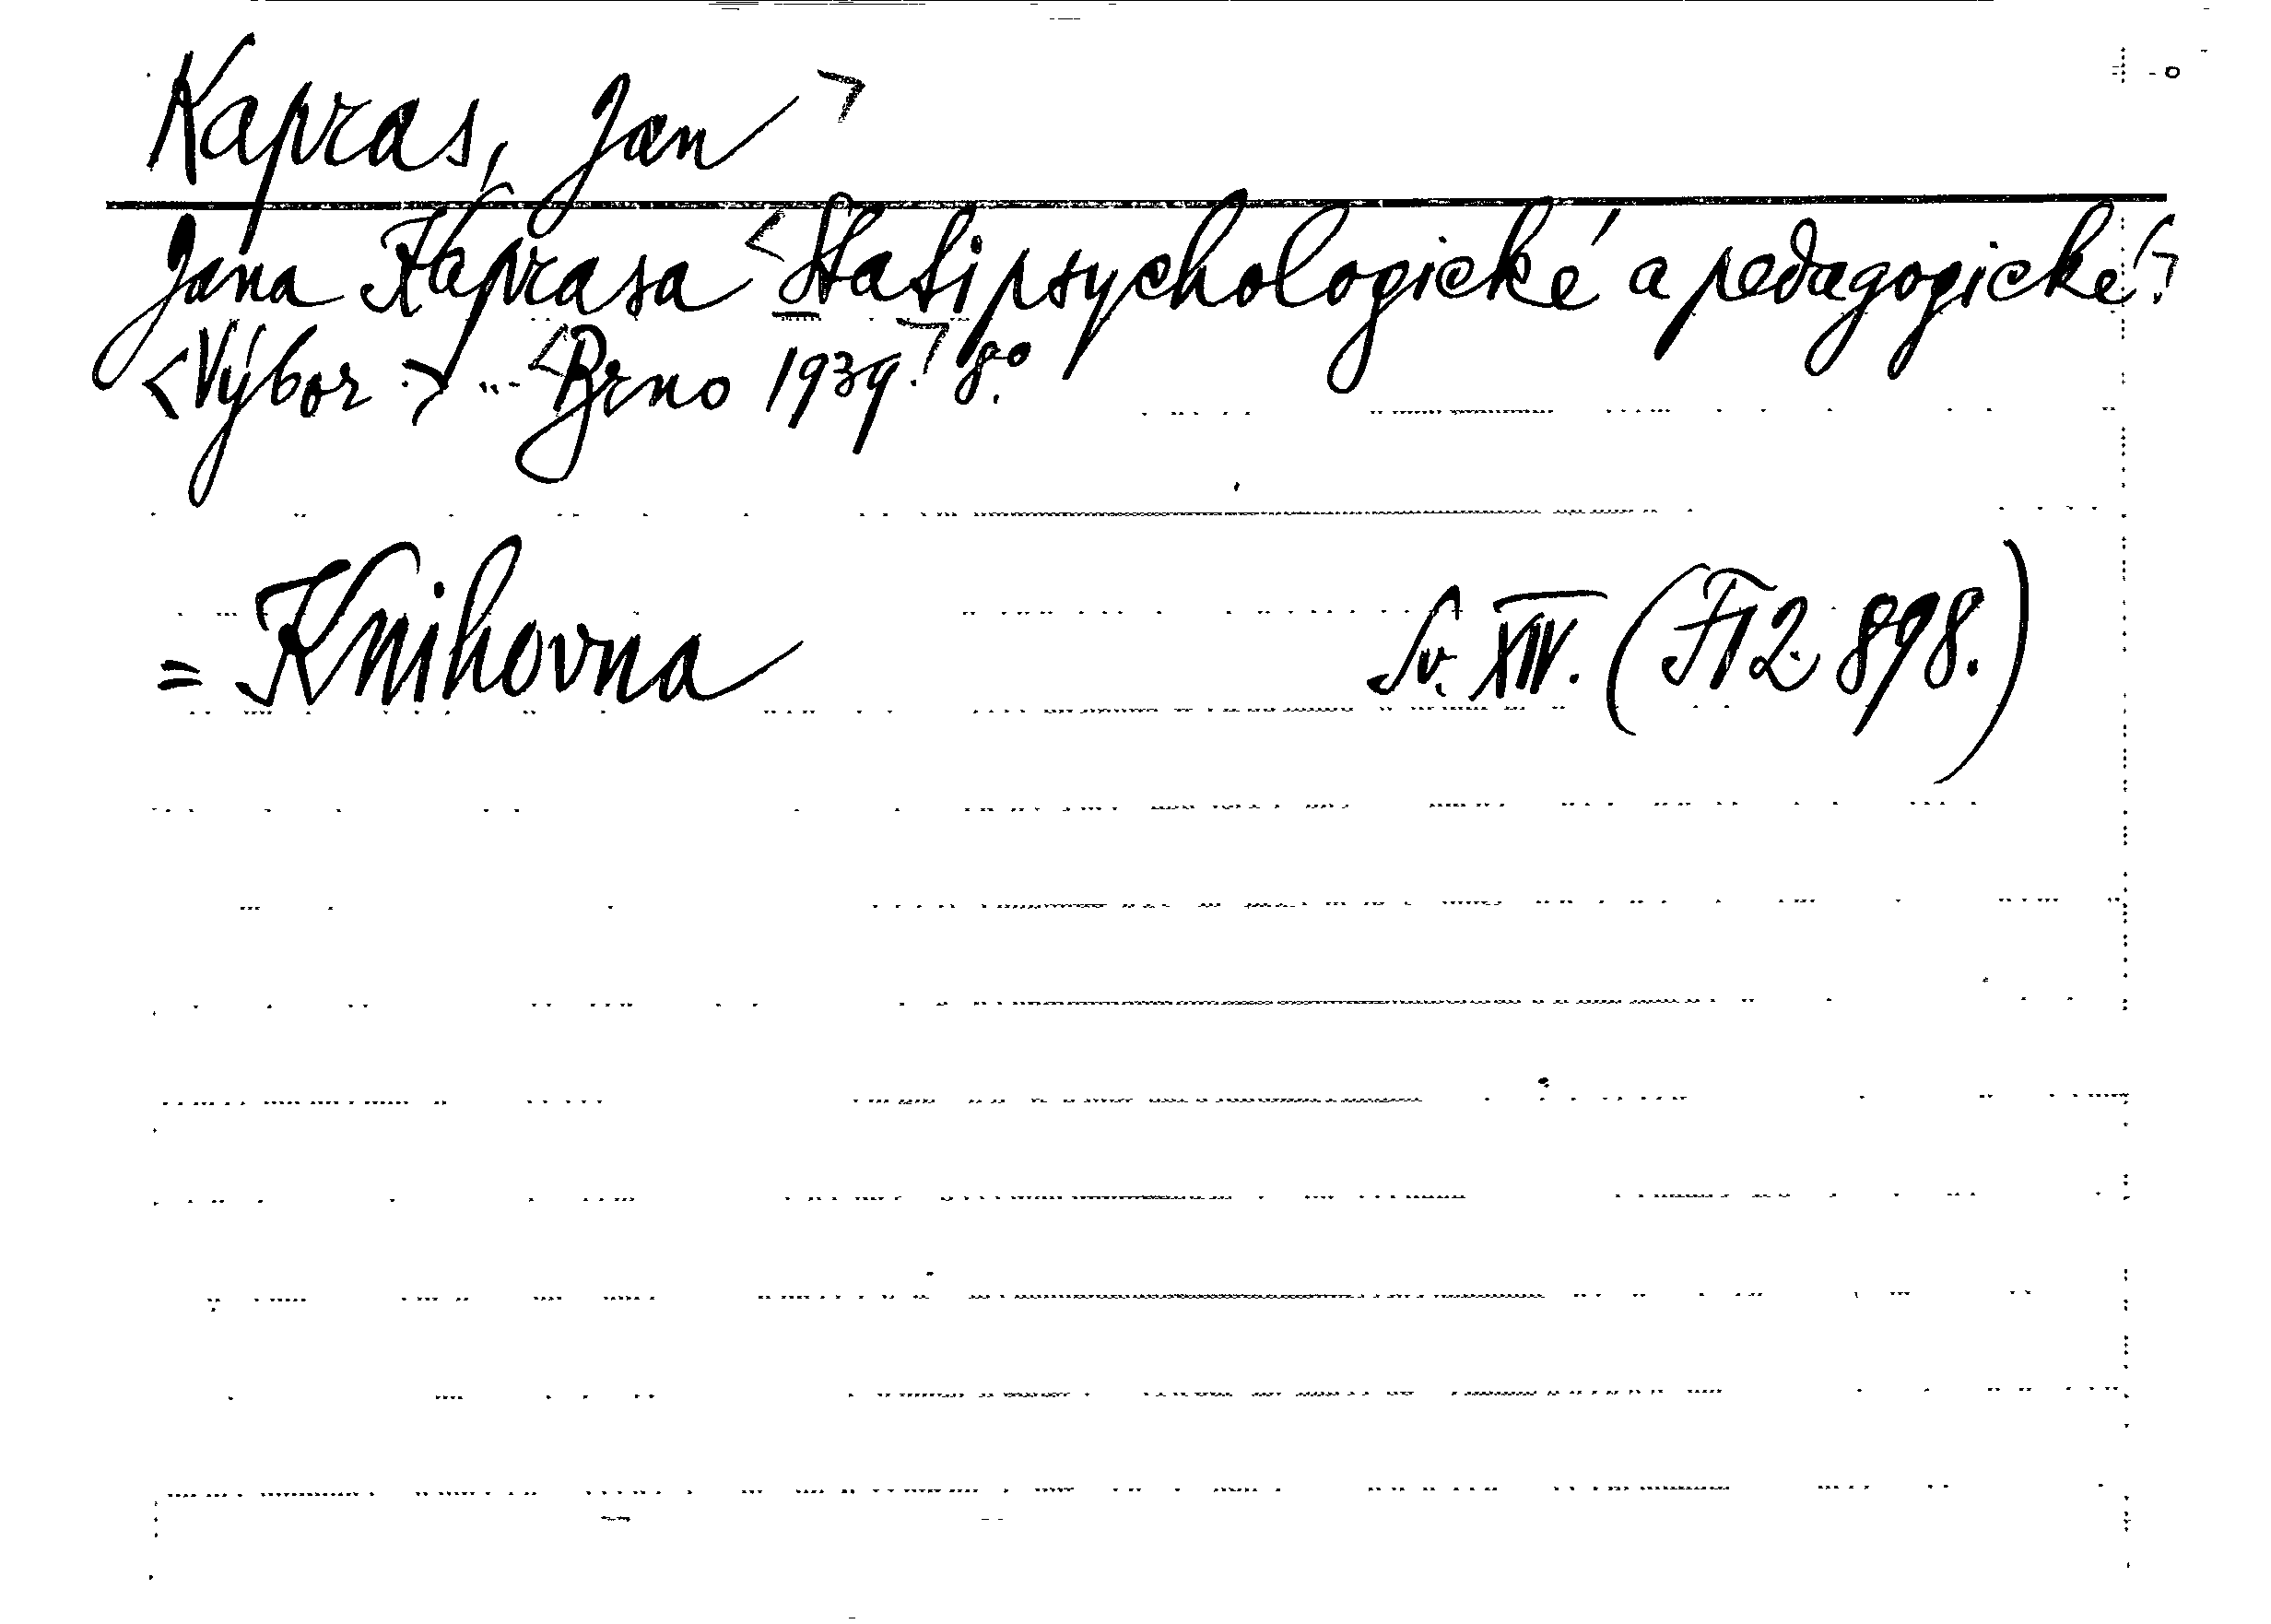 Kapras, Jan >
Jana Kaprasa <Stati psychologické a pedagogické.>
<Výbor.> ... <Brno 1939.> 8°.
= Knihovna Sv. XIV. (FI 2.898.)